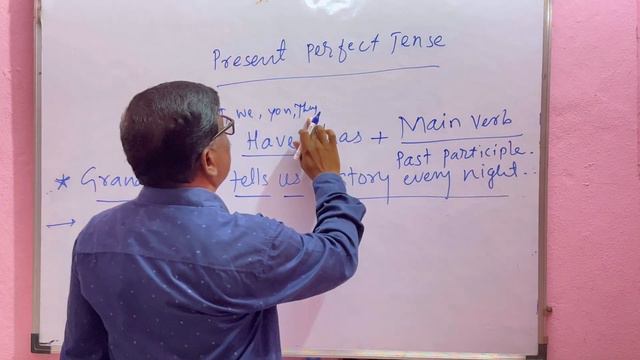 Present perfect Tense
I we, you, They
Have as + Main verb
past participle.
* Gran tells us story every night.
→